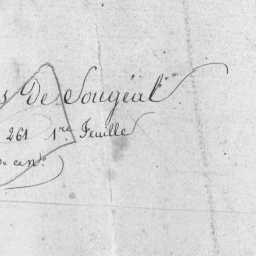 s de Sougéal
261 1re Feuille